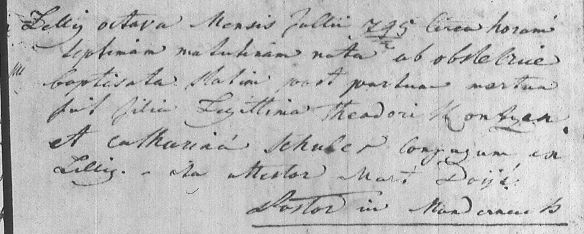 Zilly octava Mensis Jullii 795 Circa horam
Septimam matutinam nata ab obstetrice
baptisata Statim post partum mortua
fuit filia Legittima Theodori Kontzen
et catharina Schuler Conjugum, ex
Zilly. - Ita attestor Mart
Pastor in Manderneck